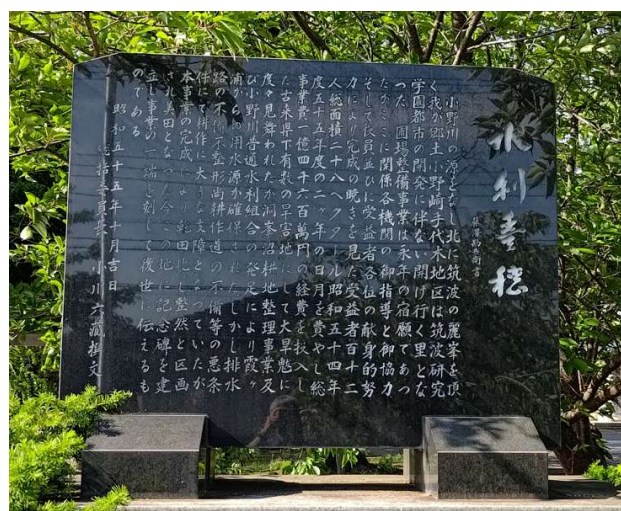 水利豊穣
小野川の源をなし北に筑波の麗峯を頂
く我が郷土小野崎手代木地区は筑波研究
学園都市の開発に伴ない開け行く里とな
つた 圃場整備事業は永年の宿願であつ
たがここに関係各機関の御指導と御協力
そして役員並びに受益者各位の献身的努
力により完成の暁きを見た受益者百十二
人総面積二十八ヘクタール昭和五十四年
度五十五年度の二ヶ年の日月を費やし総
事業費一億四千六百萬円の経費を投入し
た古来県下有数の旱害地にして大旱魃に
度々見舞われたが洞峯沼耕地整理事業及
び小野川普通水利組合の発足により霞ヶ
浦からの用水源が確保されたしかし排水
路の不備不整形尚耕作道の不備等の悪条
件にて耕作に大きな支障となつていたが
本事業の完成により乾田化し整然と区画
され美田となつた今この地に記念碑を建
立し事業の一端を刻して後世に伝えるも
のである
昭和五十五年十月吉日
総括委員長 小川六蔵撰文